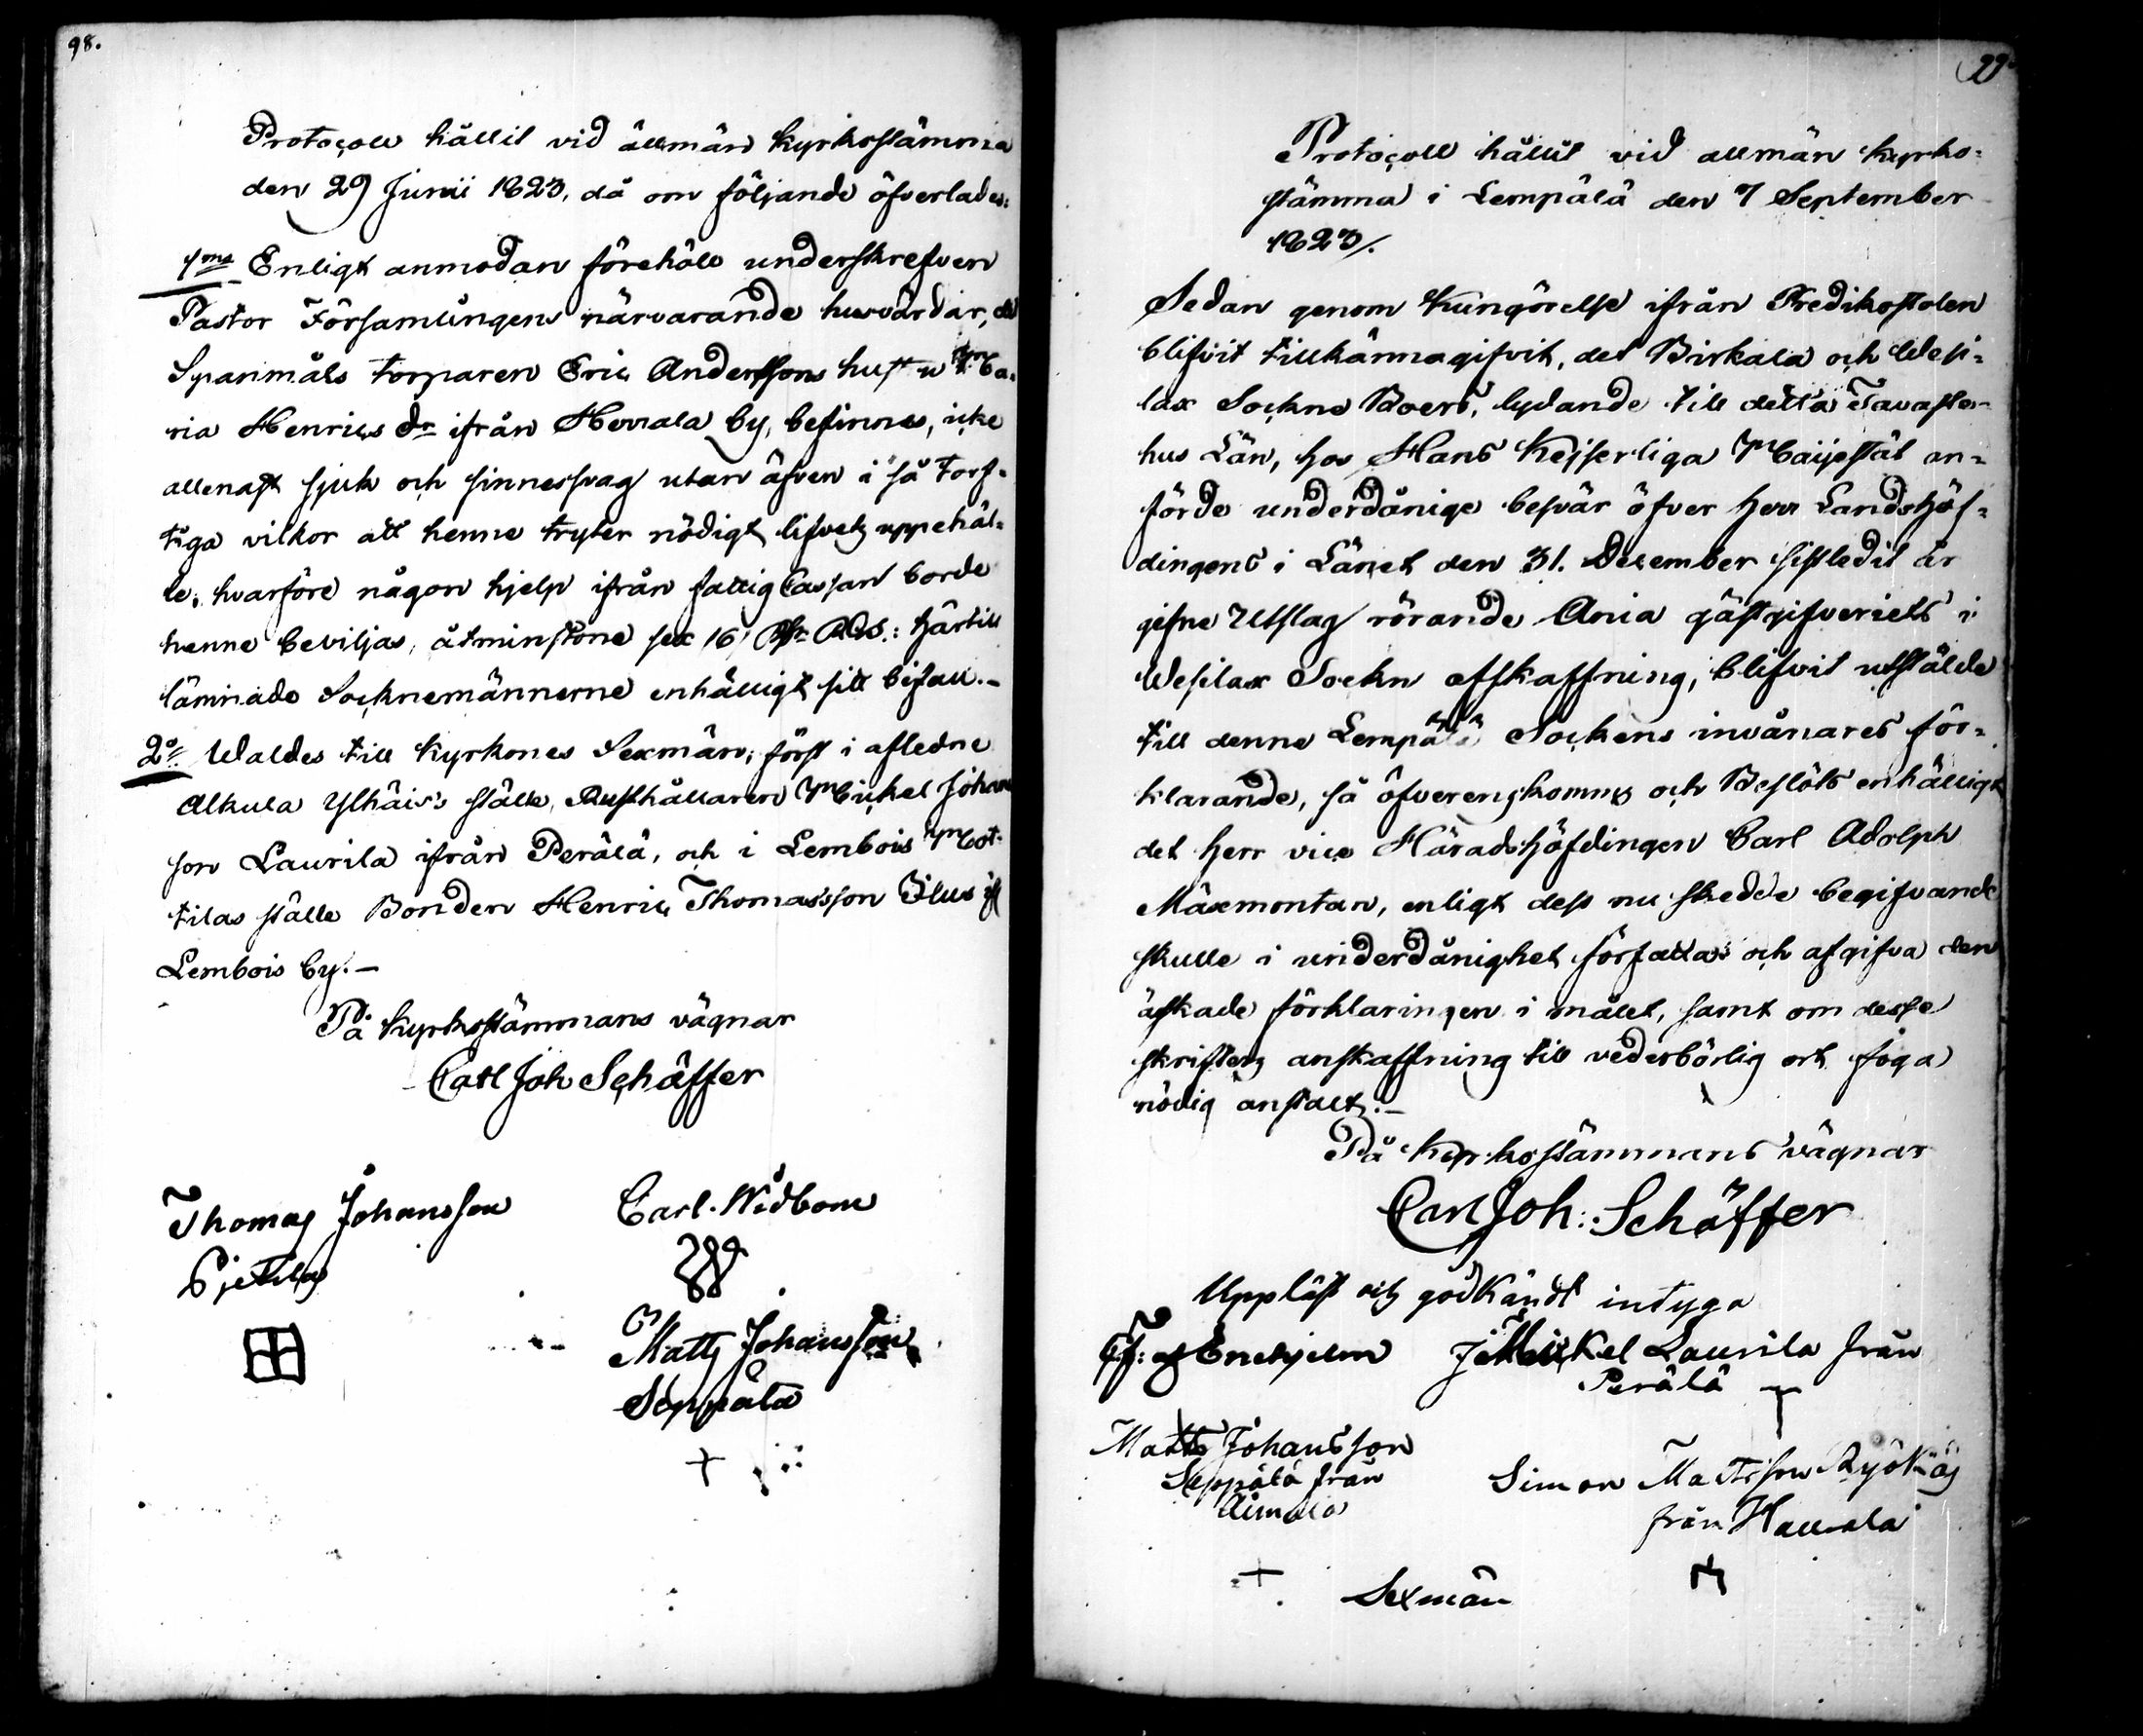 98.
Protocoll hållit vid allmän Kyrkostämma
den 29 Junii 1823, då om följande öfverlades:
1mo Enligt anmodan förehöll underskrefven
Pastor Församlingens närvarande husvärdar, at
Spanmåls torparen Eric Anderssons hustru Ma-
ria Henrics dr ifrån Herrala by, befinnes, icke
allenast sjuk och sinnessvag utan äfven i så torf-
tiga vilkor att henne tryter nödigt lifvets uppehäl-
le, hvarföre någon hjelp ifrån fattig Cassan borde
henne beviljas, åtminstone sex /6/ Rbr. : härtill
lämnade Socknemännerne enhälligt sitt bifall.–
2o Waldes till Kyrkones Sexmän; först i afledne
Alkula Ylhäis's ställe, Rusthållaren Mickel Johan
son Laurila ifrån Perälä, och i Lembois Mat-
tilas ställe Bonden Henric Thomasson Ilus ifr
Lembois by.–
På Kyrkostämmans vägnar
Carl Joh Schäffer
Thomas Johansson
Pjetilas
Carl. Widbom
Matts Johansson
Seppälä
99
Protocoll hållit vid allmän Kyrko-
stämma i Lempälä den 7 September
1823/.
Sedan genom Kungörelse ifrån Predikostolen
blifvit tillkännagifvit, det Birkala och Wesi-
lax Sockne Boers, lydande till detta Tavaste-
hus Län, hos Hans Kejserliga Maijestät an-
förde underdånige besvär öfver Herr Landshöf-
dingens i Länet den 31. December sistledit år
gifne Utslag rörande Ania gästgifveriets i
Wesilax Sockn afskaffning, blifvit utstälde
till denne Lempälä Sockens invånares för-
klarande, så öfverenskomms och Beslöts enhälligt
det Herr vice Häradshöfdingen Carl Adolph
Mäxmontan, enligt dess nu skedde begifvande
skulle i underdånighet författa och afgifva den
äskade förklaringen i målet, samt om desse
skrifters anskaffning till vederbörlig ort foga
nödig anstalt.–
På Kyrkostämmans vägnar
Carl Joh: Schäffer
Uppläst och godkändt intyga
af Enehjelm Mickel Laurila från
Perälä
Matts Johansson
Seppälä från
Simon Mattsson Ryökäs
från Haurala
Sexmän